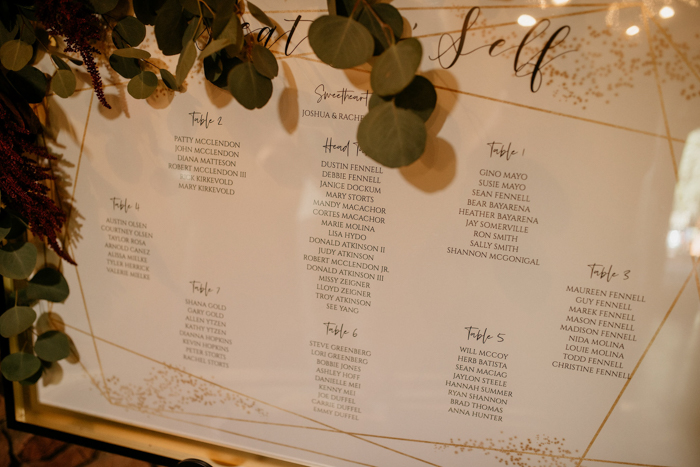 Seat Self
Sweetheart
JOSHUA & RACHEL
Table 2
PATTY MCCLENDON
JOHN MCCLENDON
DIANA MATTESON
ROBERT MCCLENDON III
RICK KIRKEVOLD
MARY KIRKEVOLD
Head
DUSTIN FENNELL
DEBBIE FENNELL
JANICE DOCKUM
MARY STORTS
MANDY MACACHOR
CORTES MACACHOR
MARIE MOLINA
LISA HYDO
DONALD ATKINSON II
JUDY ATKINSON
ROBERT MCCLENDON JR.
DONALD ATKINSON III
MISSY ZEIGNER
LLOYD ZEIGNER
TROY ATKINSON
SEE YANG
Table 1
GINO MAYO
SUSIE MAYO
SEAN FENNELL
BEAR BAYARENA
HEATHER BAYARENA
JAY SOMERVILLE
RON SMITH
SALLY SMITH
SHANNON MCGONIGAL
Table 4
AUSTIN OLSEN
COURTNEY OLSEN
TAYLOR ROSA
ARNOLD GANEZ
ALISSA MIELKS
TYLER HERRICK
VALERIE MIELKS
Table 3
MAUREEN FENNELL
GUY FENNELL
MAREK FENNELL
MASON FENNELL
MADISON FENNELL
NIDA MOLINA
LOUIE MOLINA
TODD FENNELL
CHRISTINE FENNEL
Table 7
SHANA GOLD
GARY GOLD
ALLEN YTZEN
KATHY YTZEN
DIANNA HOPKINS
KEVIN HOPKINS
PETER STORTS
RACHEL STORTS
Table 6
STEVE GREENBERG
LORI GREENBERG
BOBBIE JONES
ASHLEY HOFF
DANIELLE MEI
KENNY MEI
JOE DUFFEL
CARRIE DUFFEL
EMMY DUFFEL
Table 5
WILL MCCOY
HERB BATISTA
SEAN MACIAG
JAYLON STEELE
HANNAH SUMMER
RYAN SHANNON
BRAD THOMAS
ANNA HUNTER